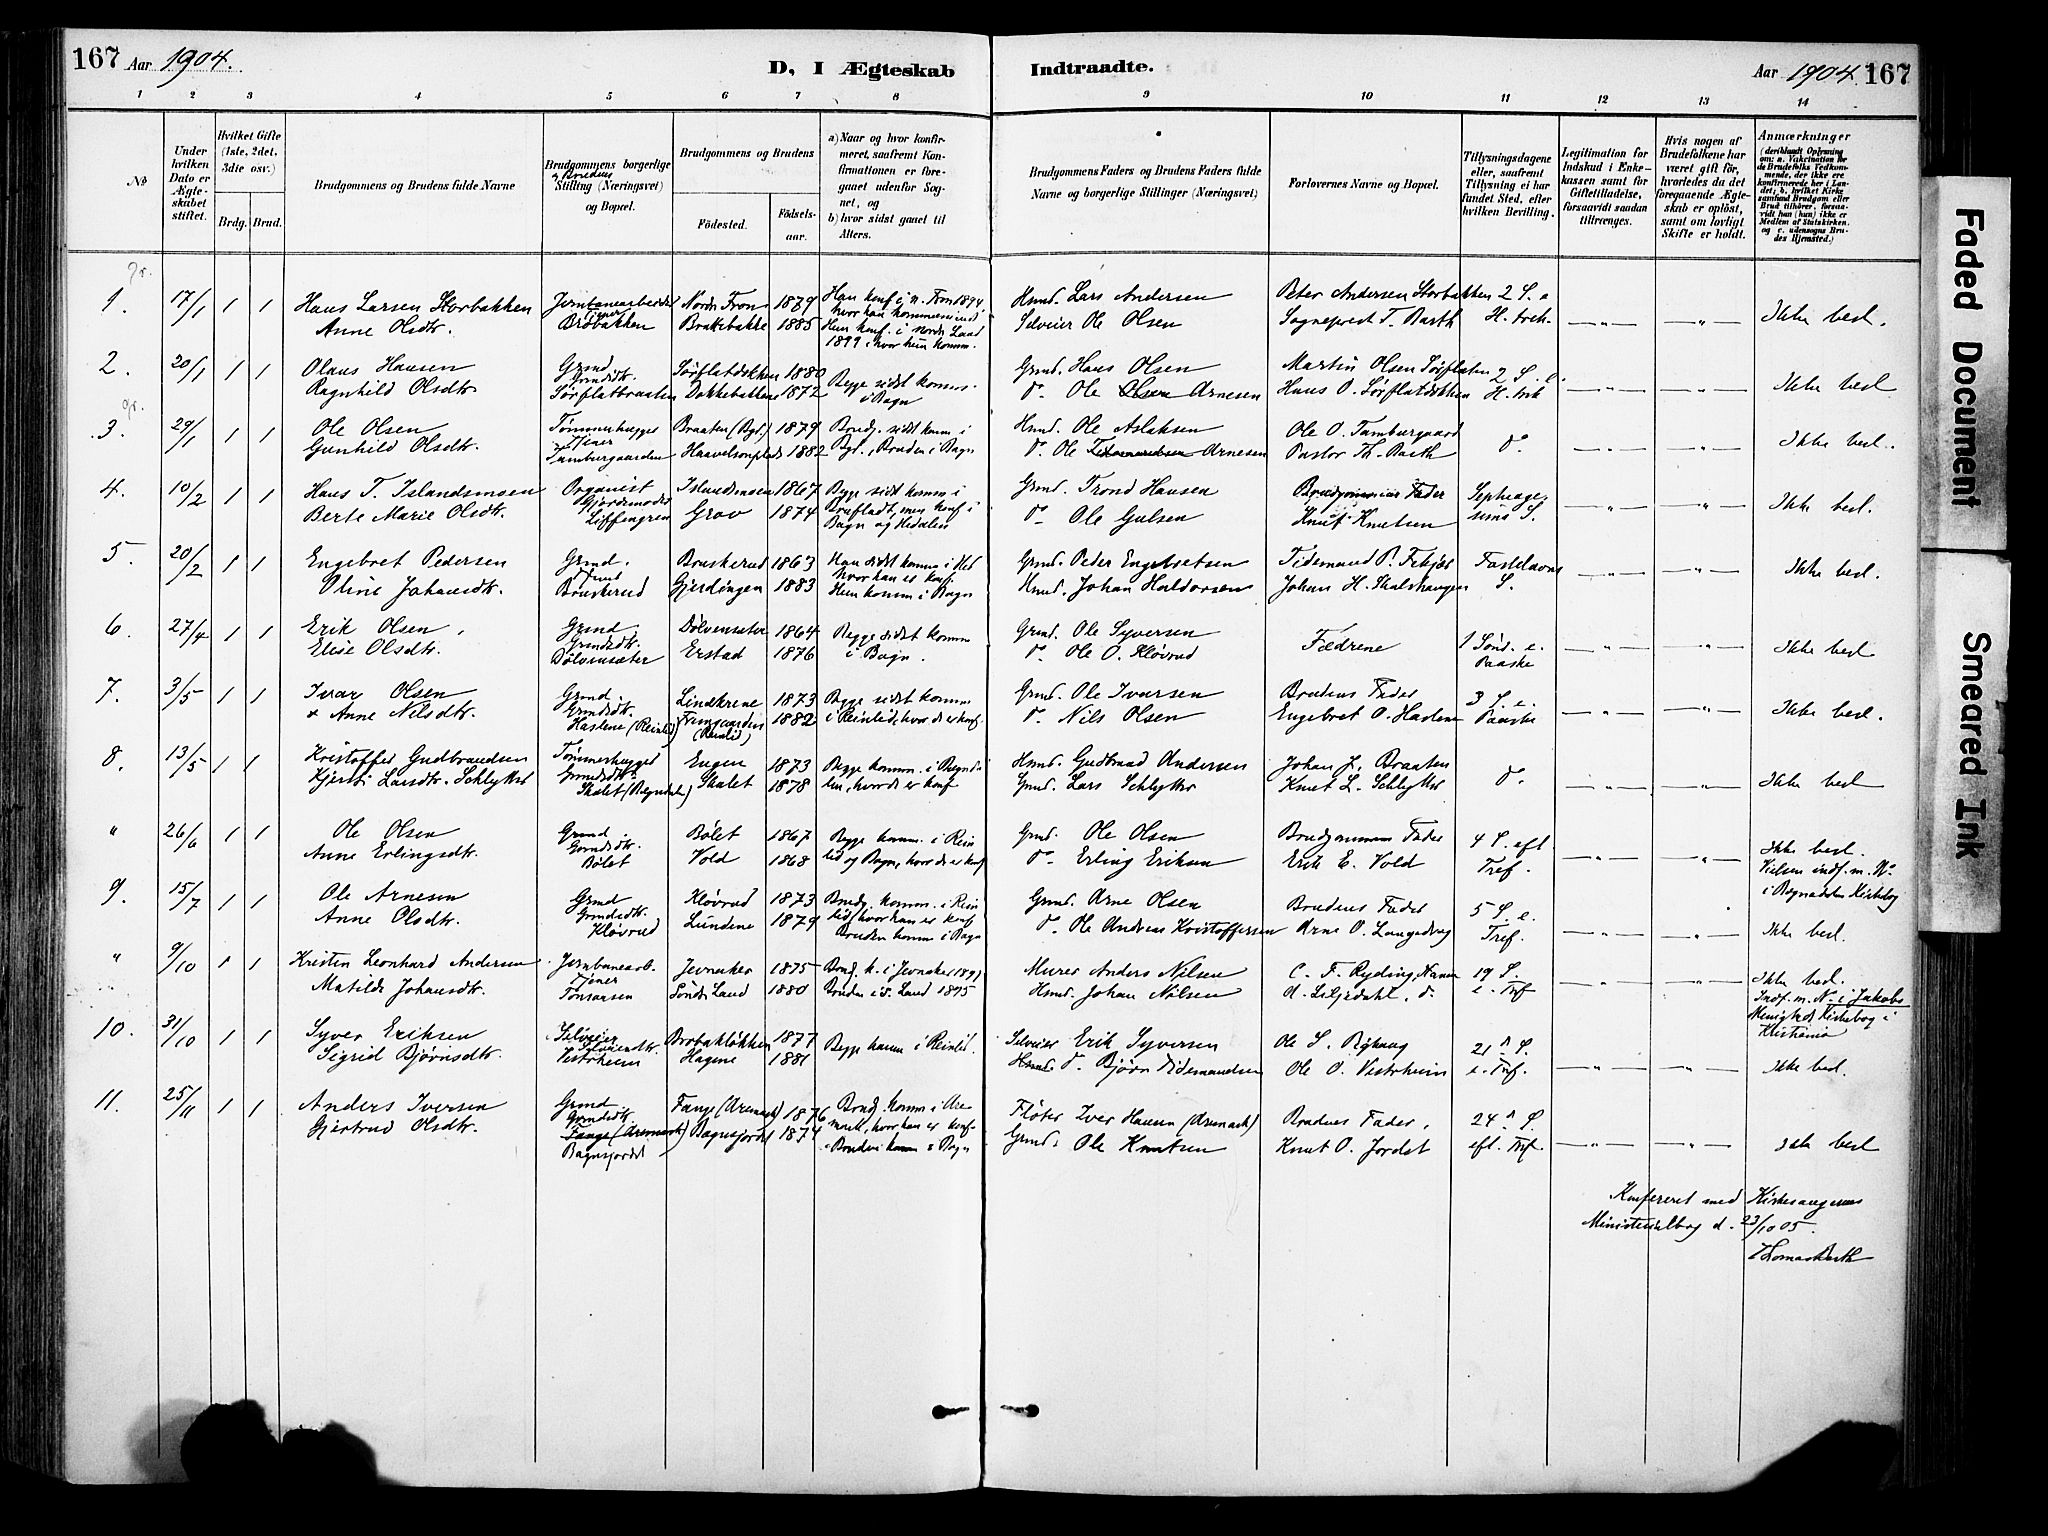 167 Aar 1904.
D, I Ægteskab Indtraadte.
Aar 1904. 167
1 2 3 4 5 6 7 8 9 10 11 12 13 14
№
Under hvilken Dato er Ægteskabet stiftet.
Hvilket Gifte (1ste, 2det, 3die osv.)
Brdg. Brud.
Brudgommens og Brudens fulde Navne
Brudgommens borgerlige
& Brudens
Stilling (Næringsvei) og Bopæl.
Brudgommens og Brudens
Födested.
Födselsaar.
a) Naar og hvor konfirmeret, saafremt Konfirmationen er foregaaet udenfor Sognet, og
b) hvor sidst gaaet til Alters.
Brudgommens Faders og Brudens Faders fulde Navne og borgerlige Stillinger (Næringsvei)
Forlovernes Navne og Bopæl.
Tillysningsdagene eller, saafremt Tillysning ei har fundet Sted, efter hvilken Bevilling.
Legitimation for Indskud i Enkekassen samt for Giftetilladelse, forsaavidt saadan tiltrænges.
Hvis nogen af Brudefolkene har været gift för, hvorledes da det foregaaende Ægteskab er oplöst, samt om lovligt Skifte er holdt.
Anmærkninger (deriblandt Oplysning om: a. Vakcination for de Brudefolks Vedkommende, der ikke ere konfirmerede her i Landet; b. hvilket Kirkesamfund Brudgom eller Brud tilhörer, forsaavidt han (hun) ikke er Medlem af Statskirken, og c. udensogns Brudes Hjemsted.)
1. 17/1 1 1 Hans Larsen Storbakken Jernbanearbeider Nordre Fron 1879 Han konf. i n. Fron 1894 Hmd. Lars Andersen Peter Andersen Storbakken 2 S. e.
Anne Olsdtr. Tjener Brøbakken Brakebakke 1885 hvor han kommunicerede Selveier Ole Olsen Sogneprest T. Barth H. trek. Ikke besl.
Hun konf. i nordre Land
1899, hvor hun komm.
2. 20/1 1 1 Olaus Hansen Grmd. Sørflatdokken 1880 Begge sidst komm. Grmd. Hans Olsen Martin Olsen Sørflaten 2 S. e.
Ragnhild Olsdtr. Grmdsdtr. Sørflatbraaten Dokkebakken 1872 i Bagn do. Ole Olsen Arnesen Hans O. Sørflatdokken H. trek Ikke besl.
3. 29/1 1 1 Ole Olsen Tømmerhugger Braaten (Bgl.) 1879 Brudg. sidst komm. i Hmd. Ole Aslaksen Ole O. Tamburgaard do.
Gunhild Olsdtr. Tjener Tamburgaarden Haavelsonplads 1882 Bgl., Bruden i Bagn do. Ole Arnesen Pastor Th. Barth Ikke besl.
4. 10/2 1 1 Hans T. Islandsmoen Organist Islandsmoen 1867 Begge sidst komm i Grmd. Trond Hansen Brudgommens Fader Septuage-
Berte Marie Olsdtr. Gjordemoder Liffengren Grov 1874 Bruflat, men konf. i do. Ole Gulsen Knut Knutsen sima S. Ikke besl.
Bagn og Hedalen
5. 20/2 1 1 Engebret Pedersen Grmd. Bruskerud 1863 Han sidst komm. i Hed. Grmd. Peder Engebretsen Tidemand P. Fekjær Fastelavns
Oline Johansdtr. Bruskerud Gjerdingen 1883 hvor han er konf. Hmd. Johan Haldorsen Johan H. Skalshaugen S. Ikke besl.
Hun komm i Bagn
6. 27/4 1 1 Erik Olsen Grmd. Dølvensæter 1864 Begge sidst komm Grmd. Ole Syversen Fædrene 1 Sønd. e.
Elise Olsdtr. Grmdsdtr. Dølvensæter Erstad 1876 i Bagn. do. Ole O. Kløvrud Paaske Ikke besl.
7. 3/5 1 1 Ivar Olsen Grmd. Lindkrene 1873 Begge sidst komm. Grmd. Ole Ivarsen Brudens Fader 3 S. e.
& Anne Nilsdtr. Grmdsdtr. Haslene (Reinlid) 1882 i Reinlid, hvor de er konf. do. Nils Olsen Engebret O. Haslene Paaske Ikke besl.
8. 13/5 1 1 Kristoffer Gudbrandsen Tømmerhugger Eugen 1873 Begge komm. i Begnda- Hmd. Gudbrand Andersen Johan J. Braaten do.
Kjersti Larsdtr. Schlytter Grmdsdtr. Skalet (Begndalen) Skalet 1878 len, hvor de er konf. Grmd. Lars Schlytter Knut L. Schlytter Ikke besl
" 26/6 1 1 Ole Olsen Grmd Bølet 1867 Begge komm. i Rein Grmd. Ole Olsen Brudgommens Fader 4 S. eft
Anne Erlingsdtr. Grmdsdtr. Bølet Vold 1868 lid og Bagn, hvor de er konf do. Erling Eriksen Erik E. Vold Tref. Ikke besl.
Vielsen indf. m. No i Begnadalen Kirkebog
9. 15/7 1 1 Ole Arnesen Grmd Kløvrud 1873 Brudg. komm. i Rein Grmd. Arne Olsen Brudens Fader 5 S. e.
Anne Olsdtr. Grmdsdtr. Kløvrud Lundene 1879 lid, hvor han er konf. do. Ole Andreas Kristoffersen Arne O. Langedrag Tref. Ikke besl.
Bruden komm i Bagn
" 9/10 1 1 Kristen Leonhard Andersen Jernbanearb. Jevnaker 1875 Brudg. k. i Jevnaker 1891 Murer Anders Nilsen C. F. Ryding, Hanen 19 S.
Matilde Johansdtr. Tjener Tonsaasen Søndre Land 1880 Bruden i s. Land 1895 Hmd. Johan Nilsen d. Liljedahl, d. e. Trf Ikke besl.
Indf. m. N. i Jakobs
Menigheds Kirkebog i
Kristiania
10. 31/10 1 1 Syver Eriksen Selveier Brobakløkken 1877 Begge komm i Reinlid. Selveier Erik Syversen Ole S. Rykaag 21 S.
Sigrid Bjørnsdtr. Vestrheim Hagene 1881 Hmd. do. Bjørn Tidemandsen Ole O. Vestrheim e. Trf. Ikke besl.
11. 25/11 1 1 Anders Iversen Grmd. Fange (Aremark) 1876 Brudg. komm. i Are Fløter Iver Hansen (Aremark) Brudens Fader, 24 S.
Gjertrud Olsdtr. Grmdsdtr. Fange (Aremark) Bagnsjordet 1874 mark, hvor han er konf. Grmd. Ole Knutsen Knut O. Jordet eft. Trf. Ikke besl
Bagnsjordet Bruden komm i Bagn
Konfereret med Kirkesangerens
Ministerialbog d. 23/10 05.
Thomas Barth
Faded Document
Smeared Ink